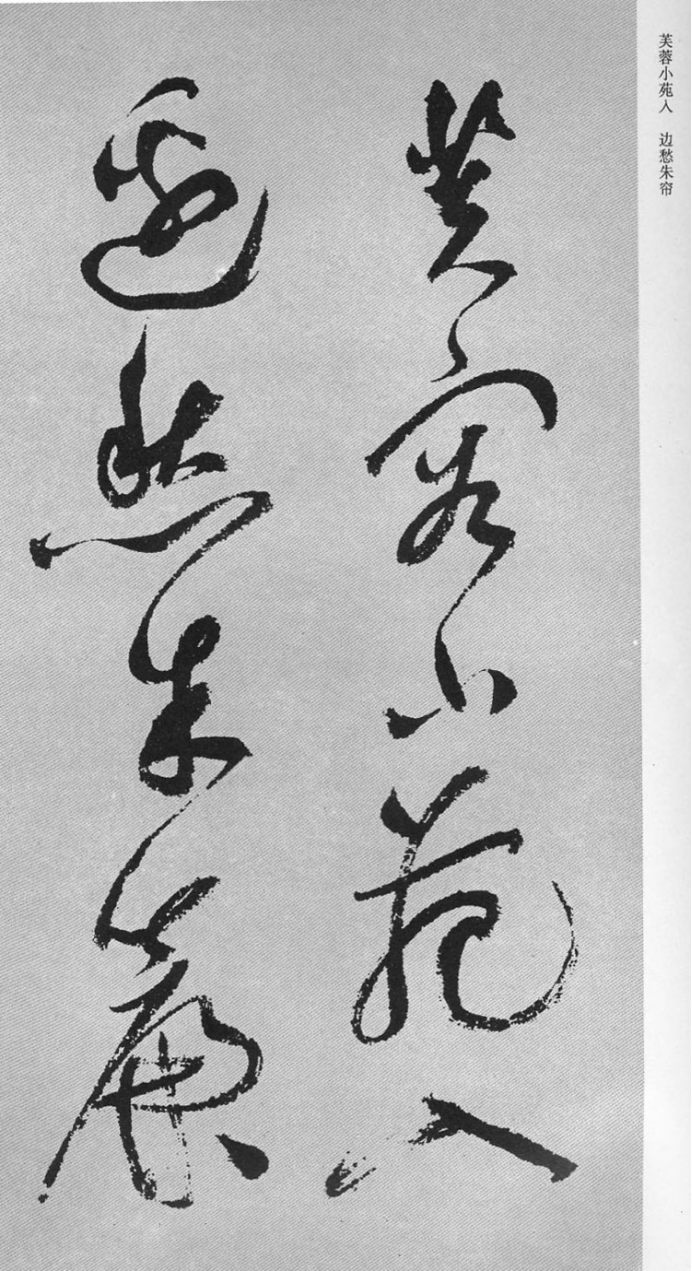 芙蓉小苑入　边愁朱帘
芙蓉小苑入
邊愁朱簾